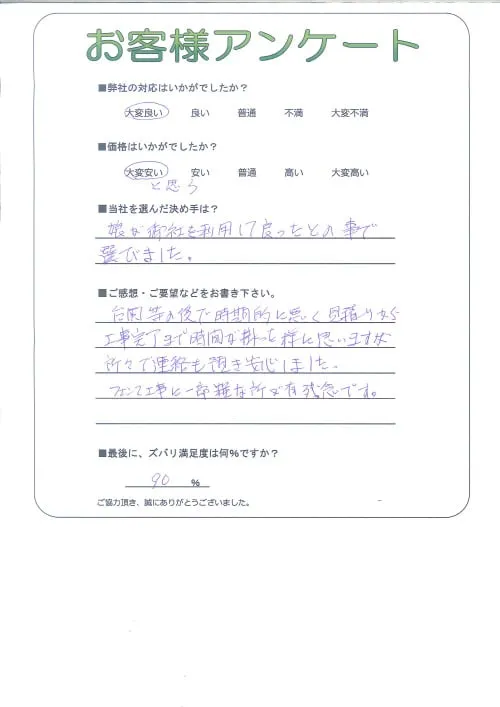 お客様アンケート
■弊社の対応はいかがでしたか？
大変良い 良い 普通 不満 大変不満
■価格はいかがでしたか？
大変安い 安い 普通 高い 大変高い
と思う
■当社を選んだ決め手は？
娘が御社を利用して良ったとの事で
選びました。
■ご感想・ご要望などをお書き下さい。
台風等の後で時期的に悪く見積りから
工事完了まで時間が掛った様に思いますが
所々で連絡も頂き安心しました。
フェンス工事に一部雑な所が有残念です。
■最後に、ズバリ満足度は何％ですか？
90 %
ご協力頂き、誠にありがとうございました。